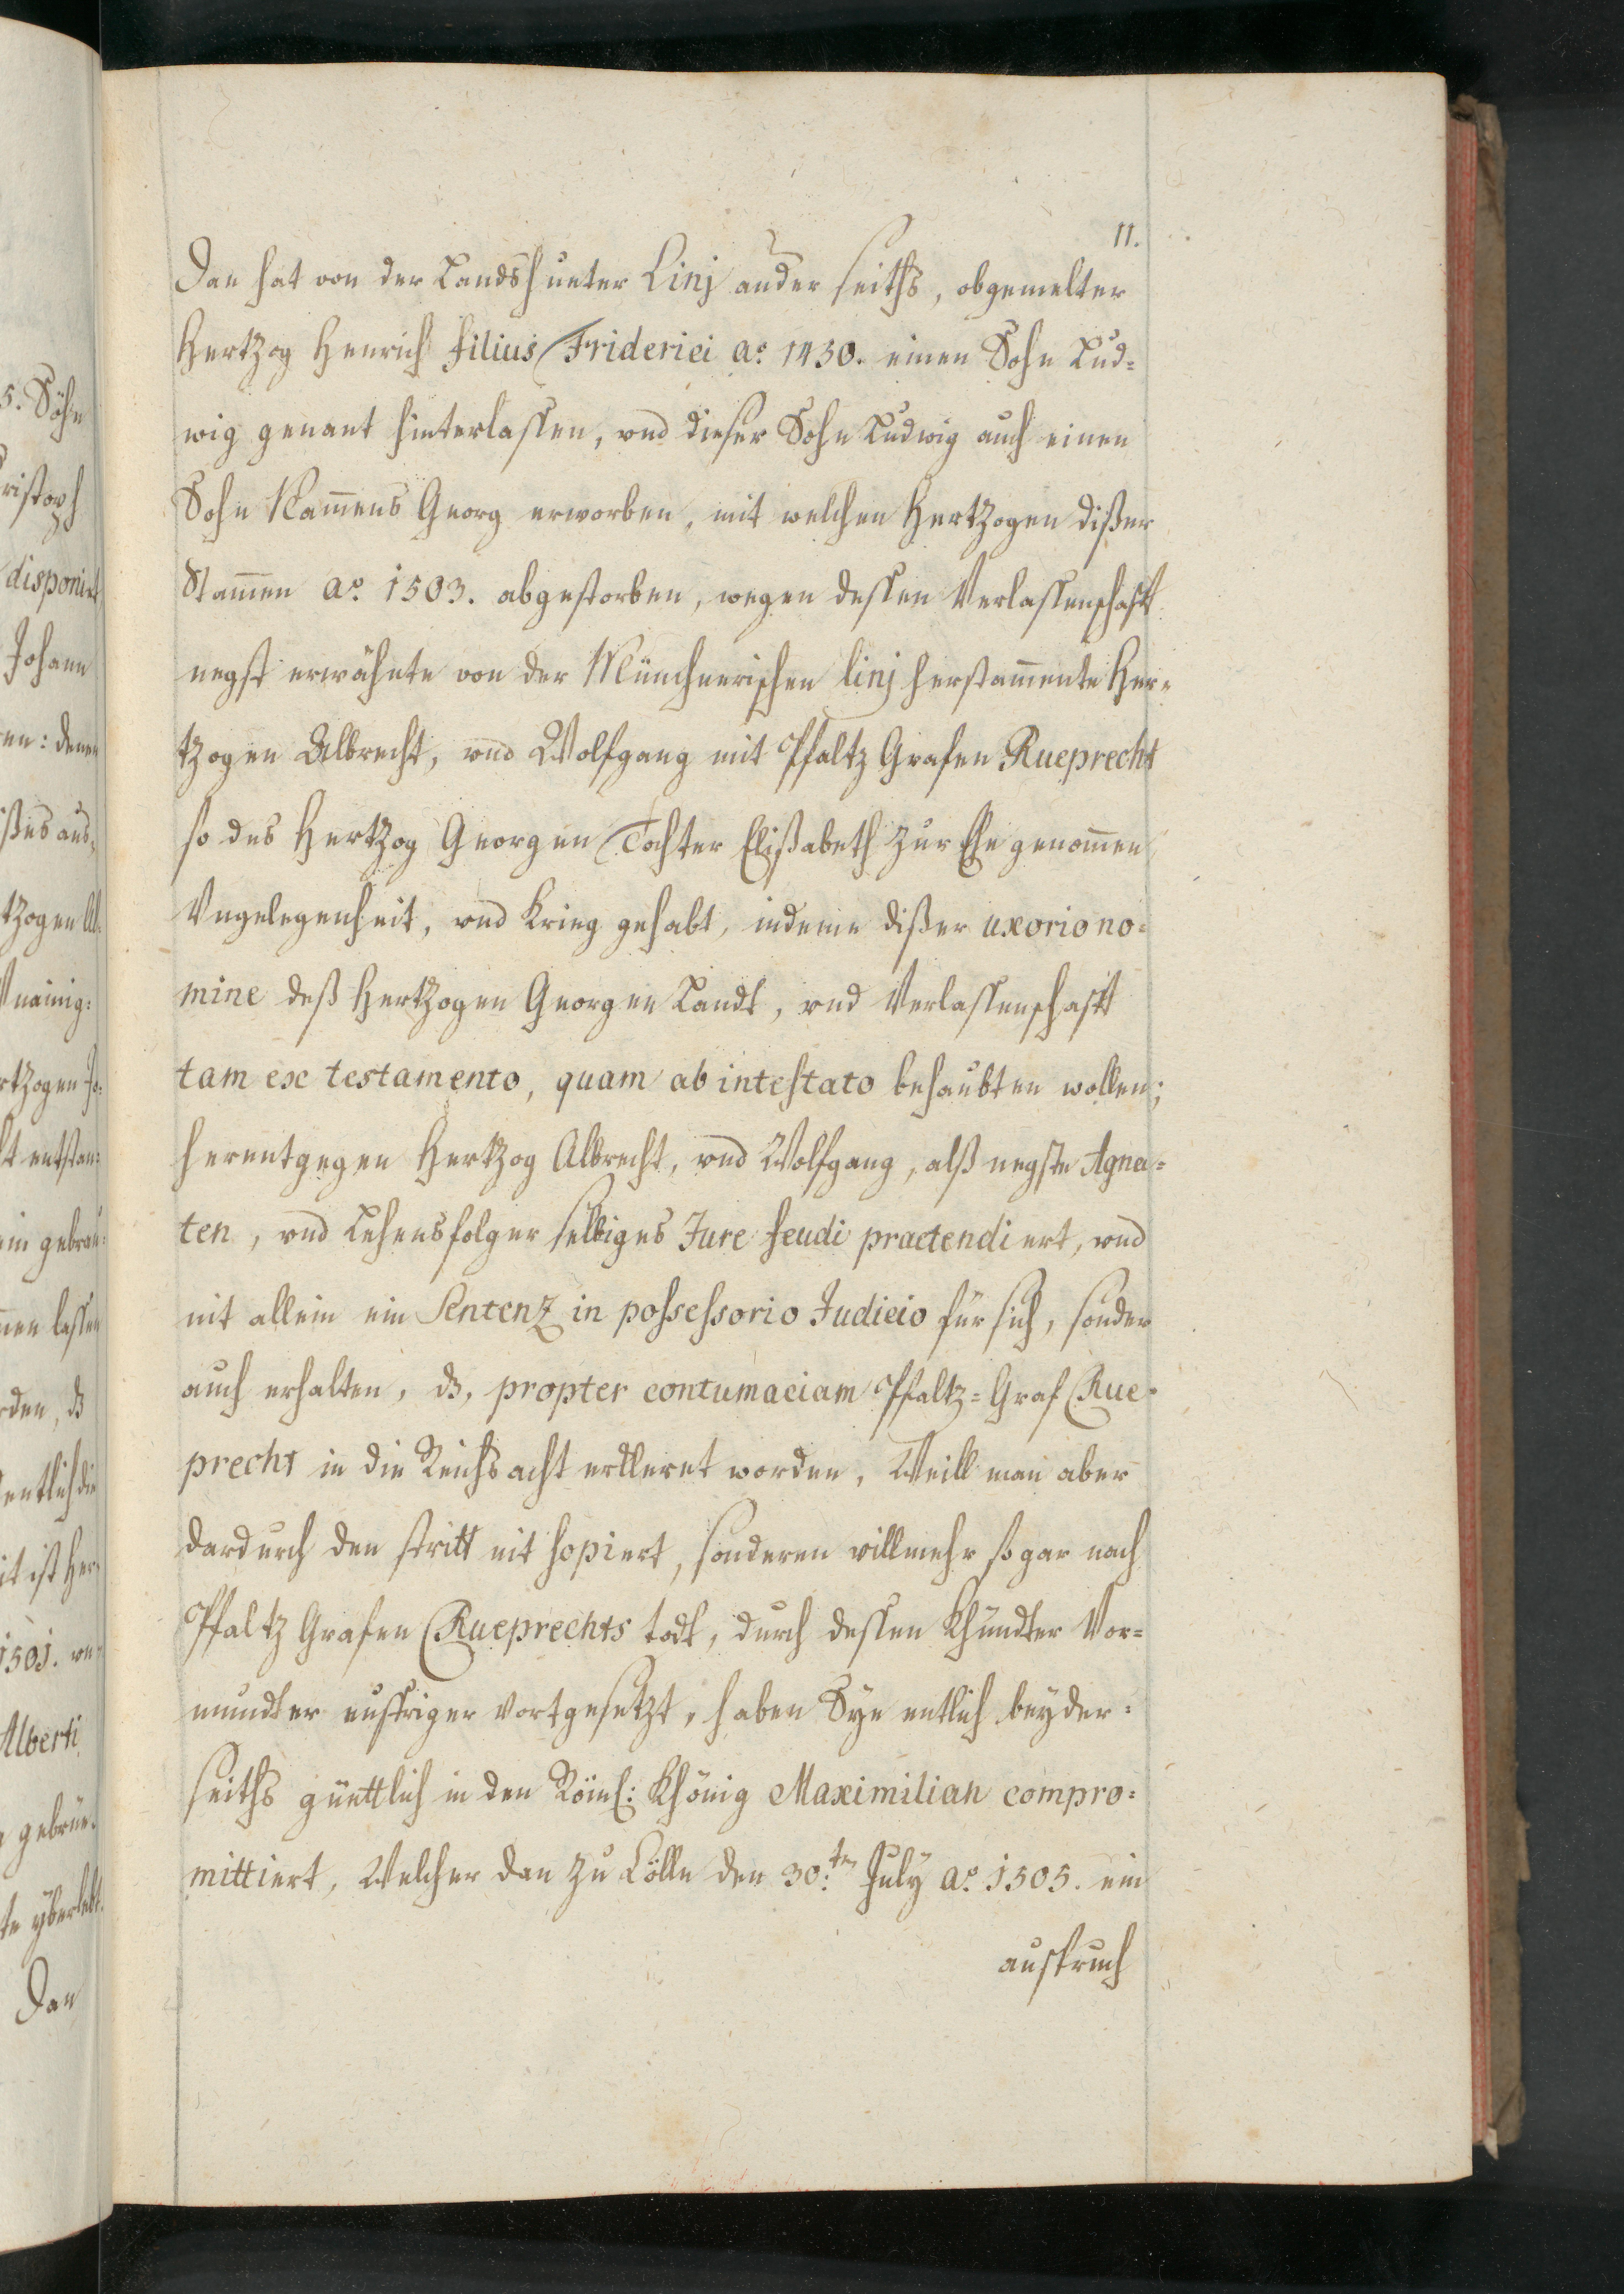 11.
Dan hat von der Landshueter Linj ander seiths, obgemelter
Hertzog Henrich filius Friderici aō. 1430. einen Sohn Lud=
wig genant hinterlassen, vnd dieser Sohn Ludwig auch einen
Sohn Nam̄ens Georg erworben, mit welchen Hertzogen dißer
Stam̄en aō. 1503. abgestorben, wegen dessen Verlassenschafft
negst erwähnte von der Münchnerischen linj herstam̄ente Her=
tzogen Albrecht, vnd Wolfgang mit Pfaltz Grafen Rueprecht
so des Hertzog Georgen Tochter Elißabeth zur Ehe genom̄en
Vngelegenheit, vnd Krieg gehabt, indeme dißer uxorio no=
mine deß Hertzogen Georgen Landt, vnd Verlassenschafft
tam ex testamento, quam ab intestato behaubten wollen;
herentgegen Hertzog Albrecht, vnd Wolfgang, alß negste Agna=
ten, vnd Lehensfolger selbiges Jure feudi praetendiert, vnd
nit allein ein Sentenz in possessorio Judicio für sich, sonder
auch erhalten, dz, propter contumaciam Pfaltz=Graf Rue=
precht in die Reichs acht erkleret worden, Weill man aber
dardurch den stritt nit sopiert, sonderen villmehr so gar nach
Pfaltz Grafen Rueprechts todt, durch dessen Khündter Vor=
mundter eyffriger vortgesetzt, haben Sye entlich beyder=
seiths güettlich in den Röml: Khönig Maximilian compro=
mittiert, Welcher dan zu Cölln den 30.ten July aō. 1505. ein
ausspruch
5. Söhn
ristoph
disponirt
Johann
en: denen
ißes aus=
tzogen Al=
Vnainig=
rtzogen Jo=
t entstan=
ein gebrau=
men lassen
rden, dz
entlich die
it ist Her=
1501. we=
Alberti
gebrue=
te yberlebt.
Dan